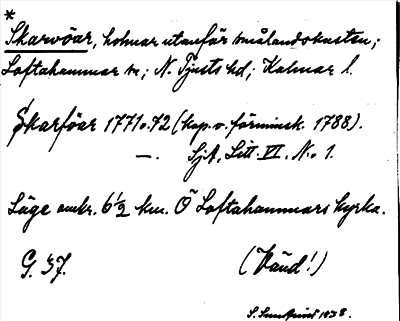 *
Skarvöar, holmar utanför smålandskusten;
Loftahammar sn; N. Tjusts hd; Kalmar l.
Skarföar 1771 o. 72 (kop. o. förminsk. 1788).
—. SjA, Litt. VI. No 1.
Läge omkr. 6 1/2 km. Ö Loftahammars kyrka.
G. 37.
(Vänd!)
S. 1938.